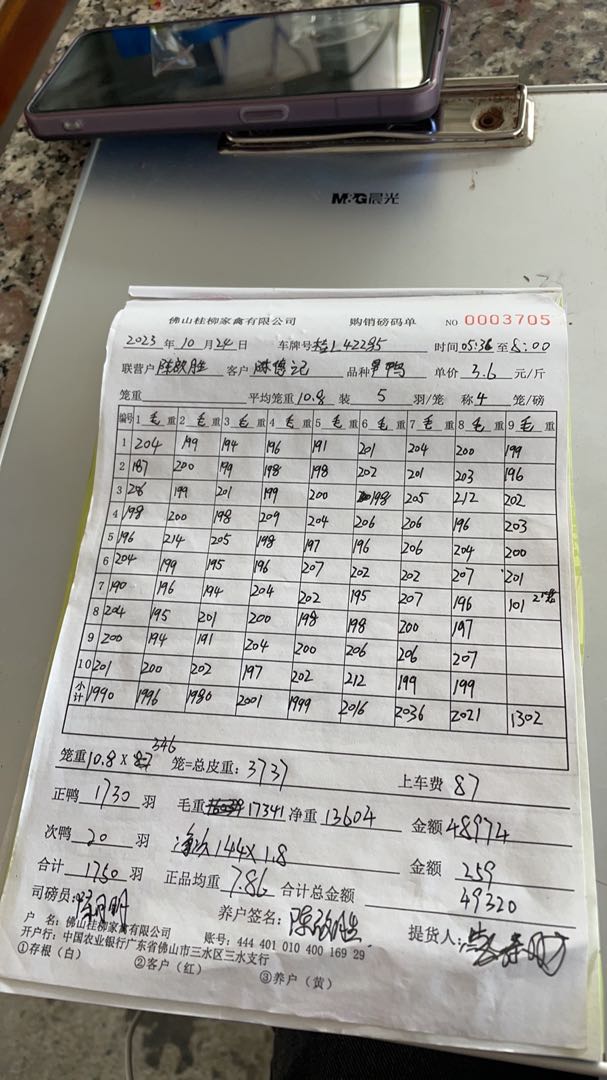 M&G晨光
佛山桂柳家禽有限公司 购销磅码单 NO 0003705
2023年10月24日 车牌号 42295 时间05:36至8:00
联营户 陈欧胜 客户 陈傅记 品种 甲鸭 单价 3.6 元/斤
笼重 平均笼重10.8 装 5 羽/笼 称4 笼/磅
编号 1毛重 2毛重 3毛重 4毛重 5毛重 6毛重 7毛重 8毛重 9毛重
1 204 199 194 196 191 201 204 200 199
2 187 200 199 198 198 202 201 203 196
3 206 199 201 199 200 198 205 212 202
4 198 200 198 209 204 206 206 196 203
5 196 214 205 198 197 196 206 204 200
6 204 199 195 196 207 202 202 207 201
7 190 196 194 204 202 195 207 196 101 2笼
8 204 195 201 200 198 198 200 197
9 200 194 191 204 200 206 206 207
10 201 200 202 197 202 212 199 199
小计 1990 1996 1980 2001 1999 2016 2036 2021 1302
346
笼重10.8X 笼=总皮重:3737 上车费 87
正鸭 1730 羽 毛重 17341 净重 13604 金额 48974
次鸭 20 羽 净次144X1.8 金额 259
合计 1750 羽 正品均重 7.86 合计总金额 49320
司磅员: 养户签名:陈欧胜 提货人:
户 名:佛山桂柳家禽有限公司 账号:444 401 010 400 169 29
开户行:中国农业银行广东省佛山市三水区三水支行
①存根(白) ②客户(红) ③养户(黄)